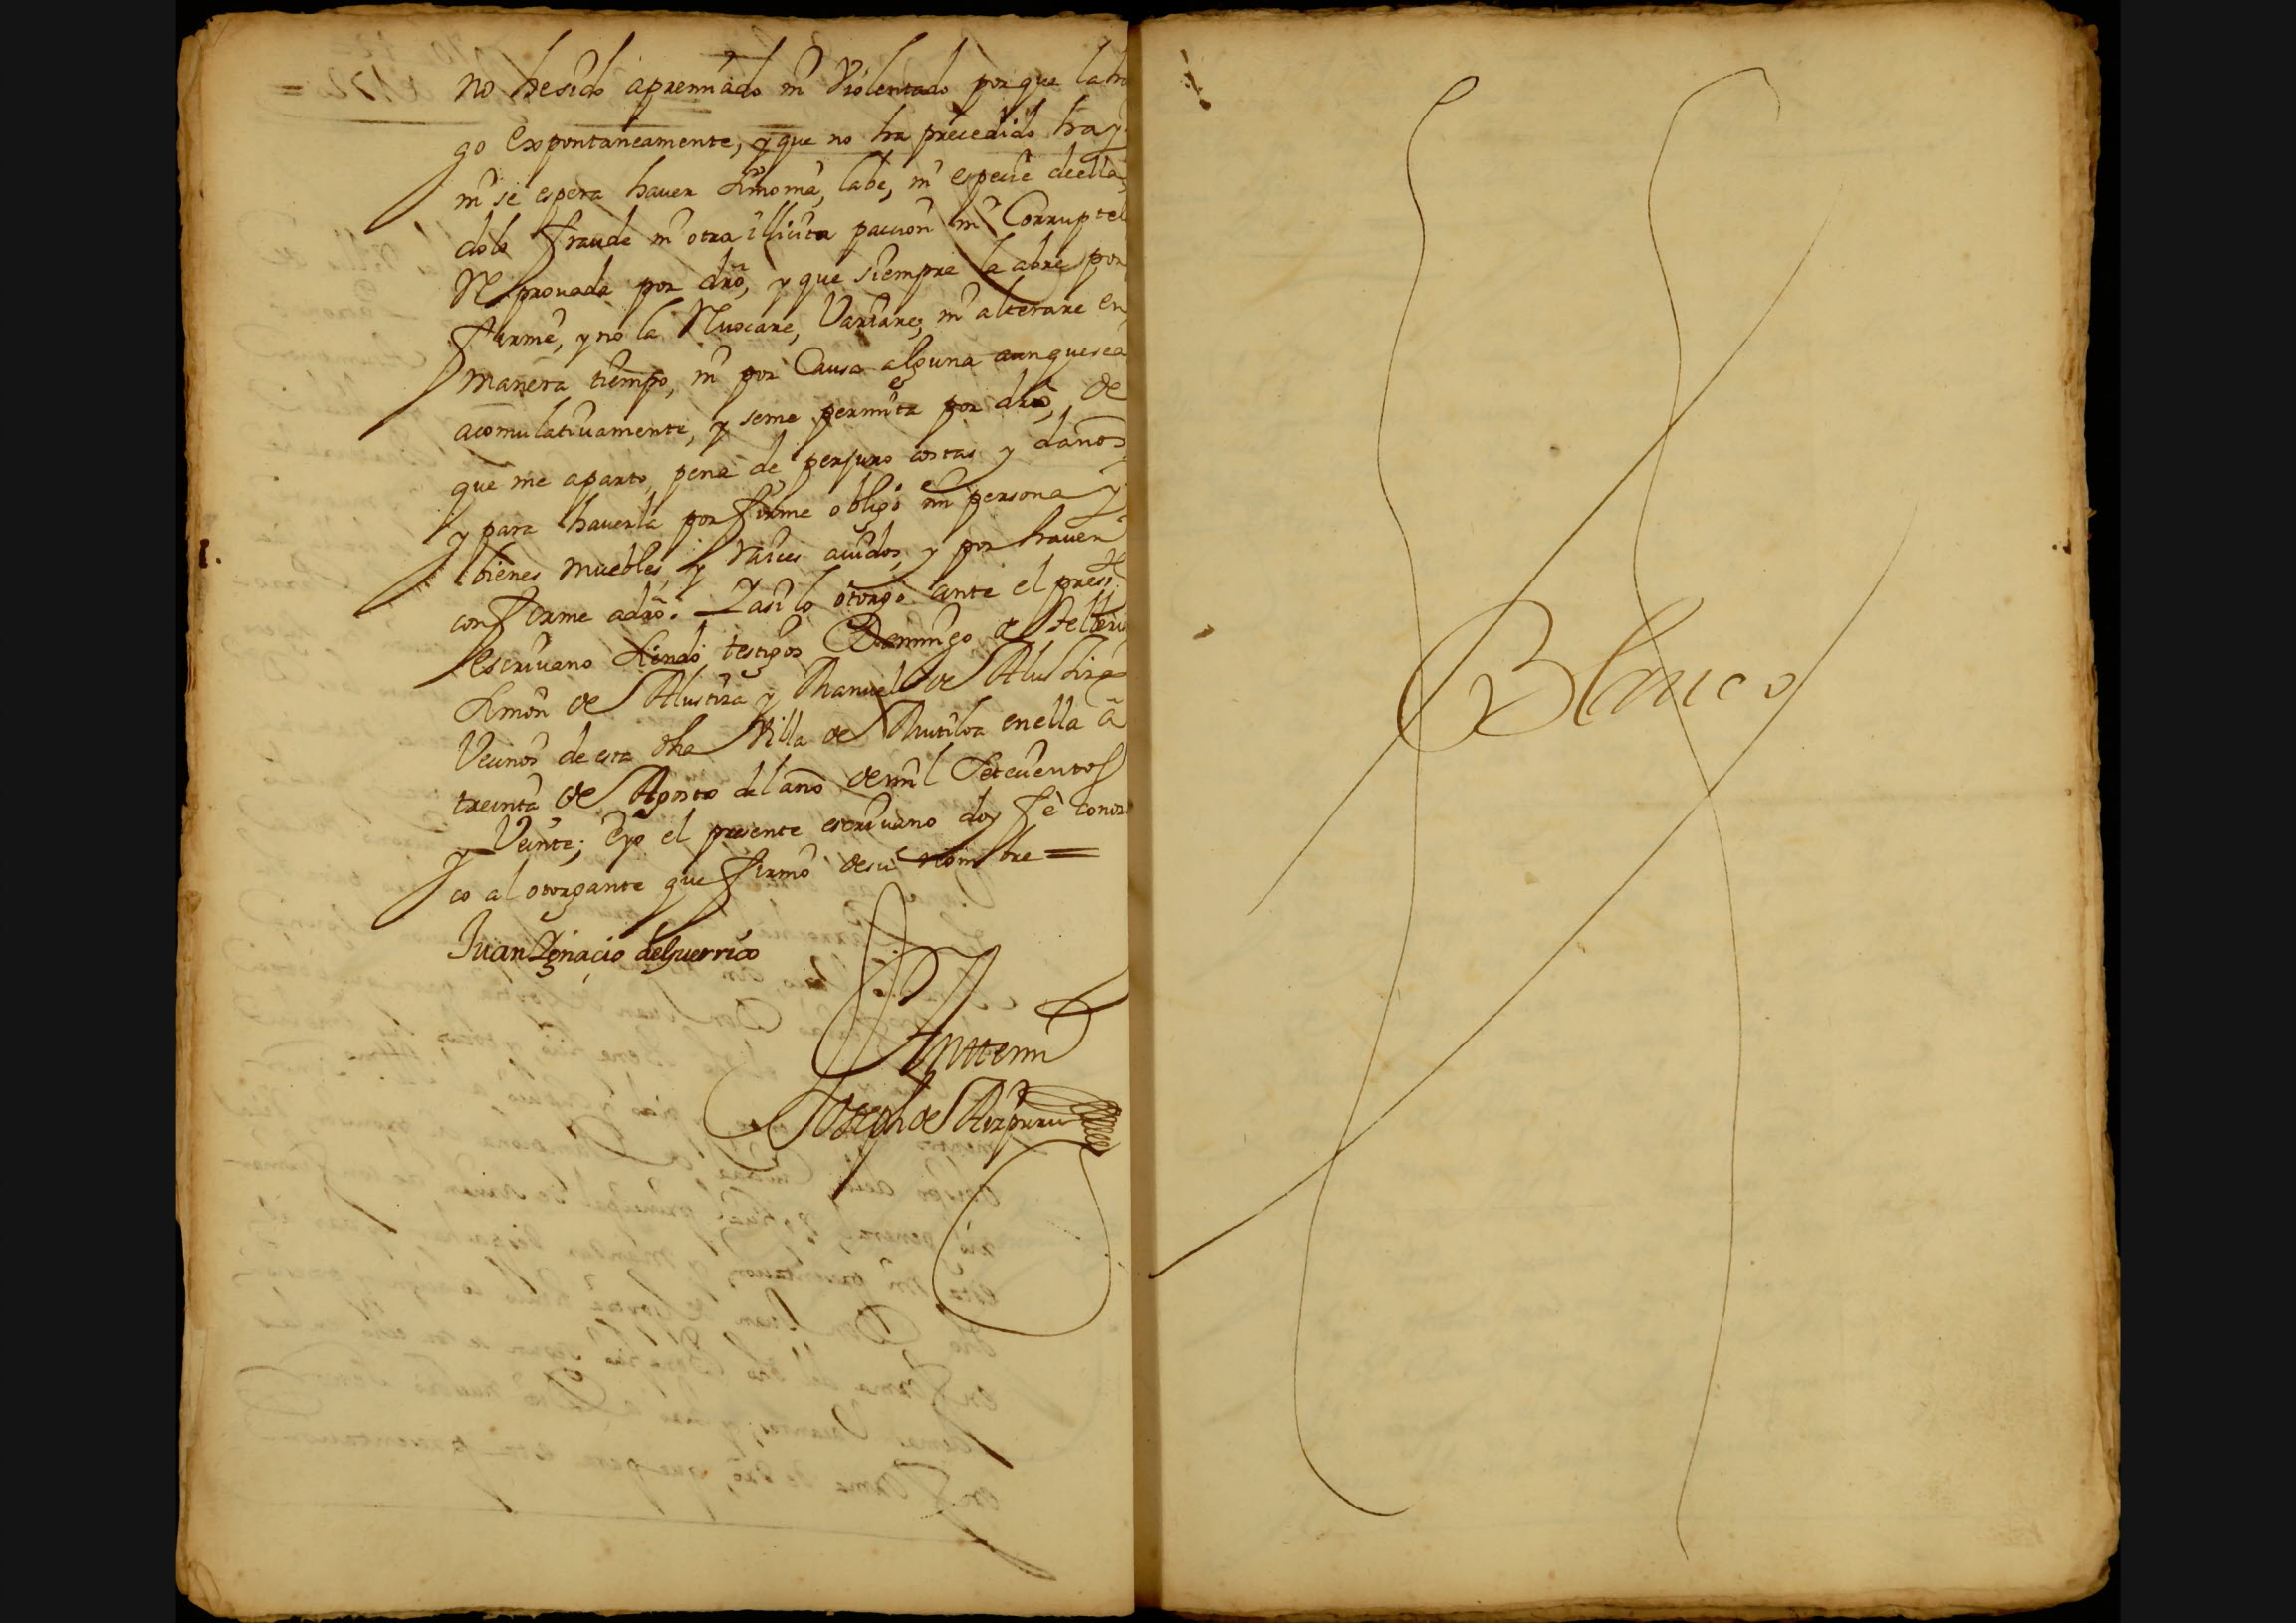 no he sido apremiado ni Violentado por que la ha
go Expontaneamente, y que no ha precedido hay
ni se espera haver simonia, labe, ni especie de ella,
dolo fraude ni otra illicita paccion ni Corruptel
Reprovada por dro, y que siempre la abre por
firme, y no la Revocare, Variare, ni alterare en
manera tiempo, ni por Causa alguna aunque sea
acomulativamente, y seme permita por dro, de
que me aparto, pena de perjuro costas y daños,
y para haverla por firme obligo mi persona y
bienes muebles, y raices avidos, y por haver
conforme a dro. Y asi lo otorgo ante el press.te
escrivano siendo testigos Domingo de
Simon de Alustiza y Manuel de Alustiza
Vecinos de esta dha Villa de Mutiloa en ella a
treinta de Agosto del año de mil Setecientos
y Veinte; E yo el presente escrivano doy fe conoz
co al otorgante que firmo de su nombre =
Juan Ygnacio de Guerrico
Antte mi
Joseph de Aizpuru
Blanco